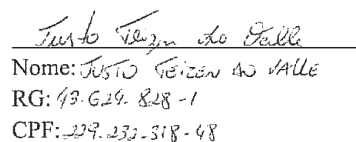 Justo Teizen do Valle
Nome: JUSTO TEIZEN DO VALLE
RG: 43.624.828-1
CPF: 229.232.318-48